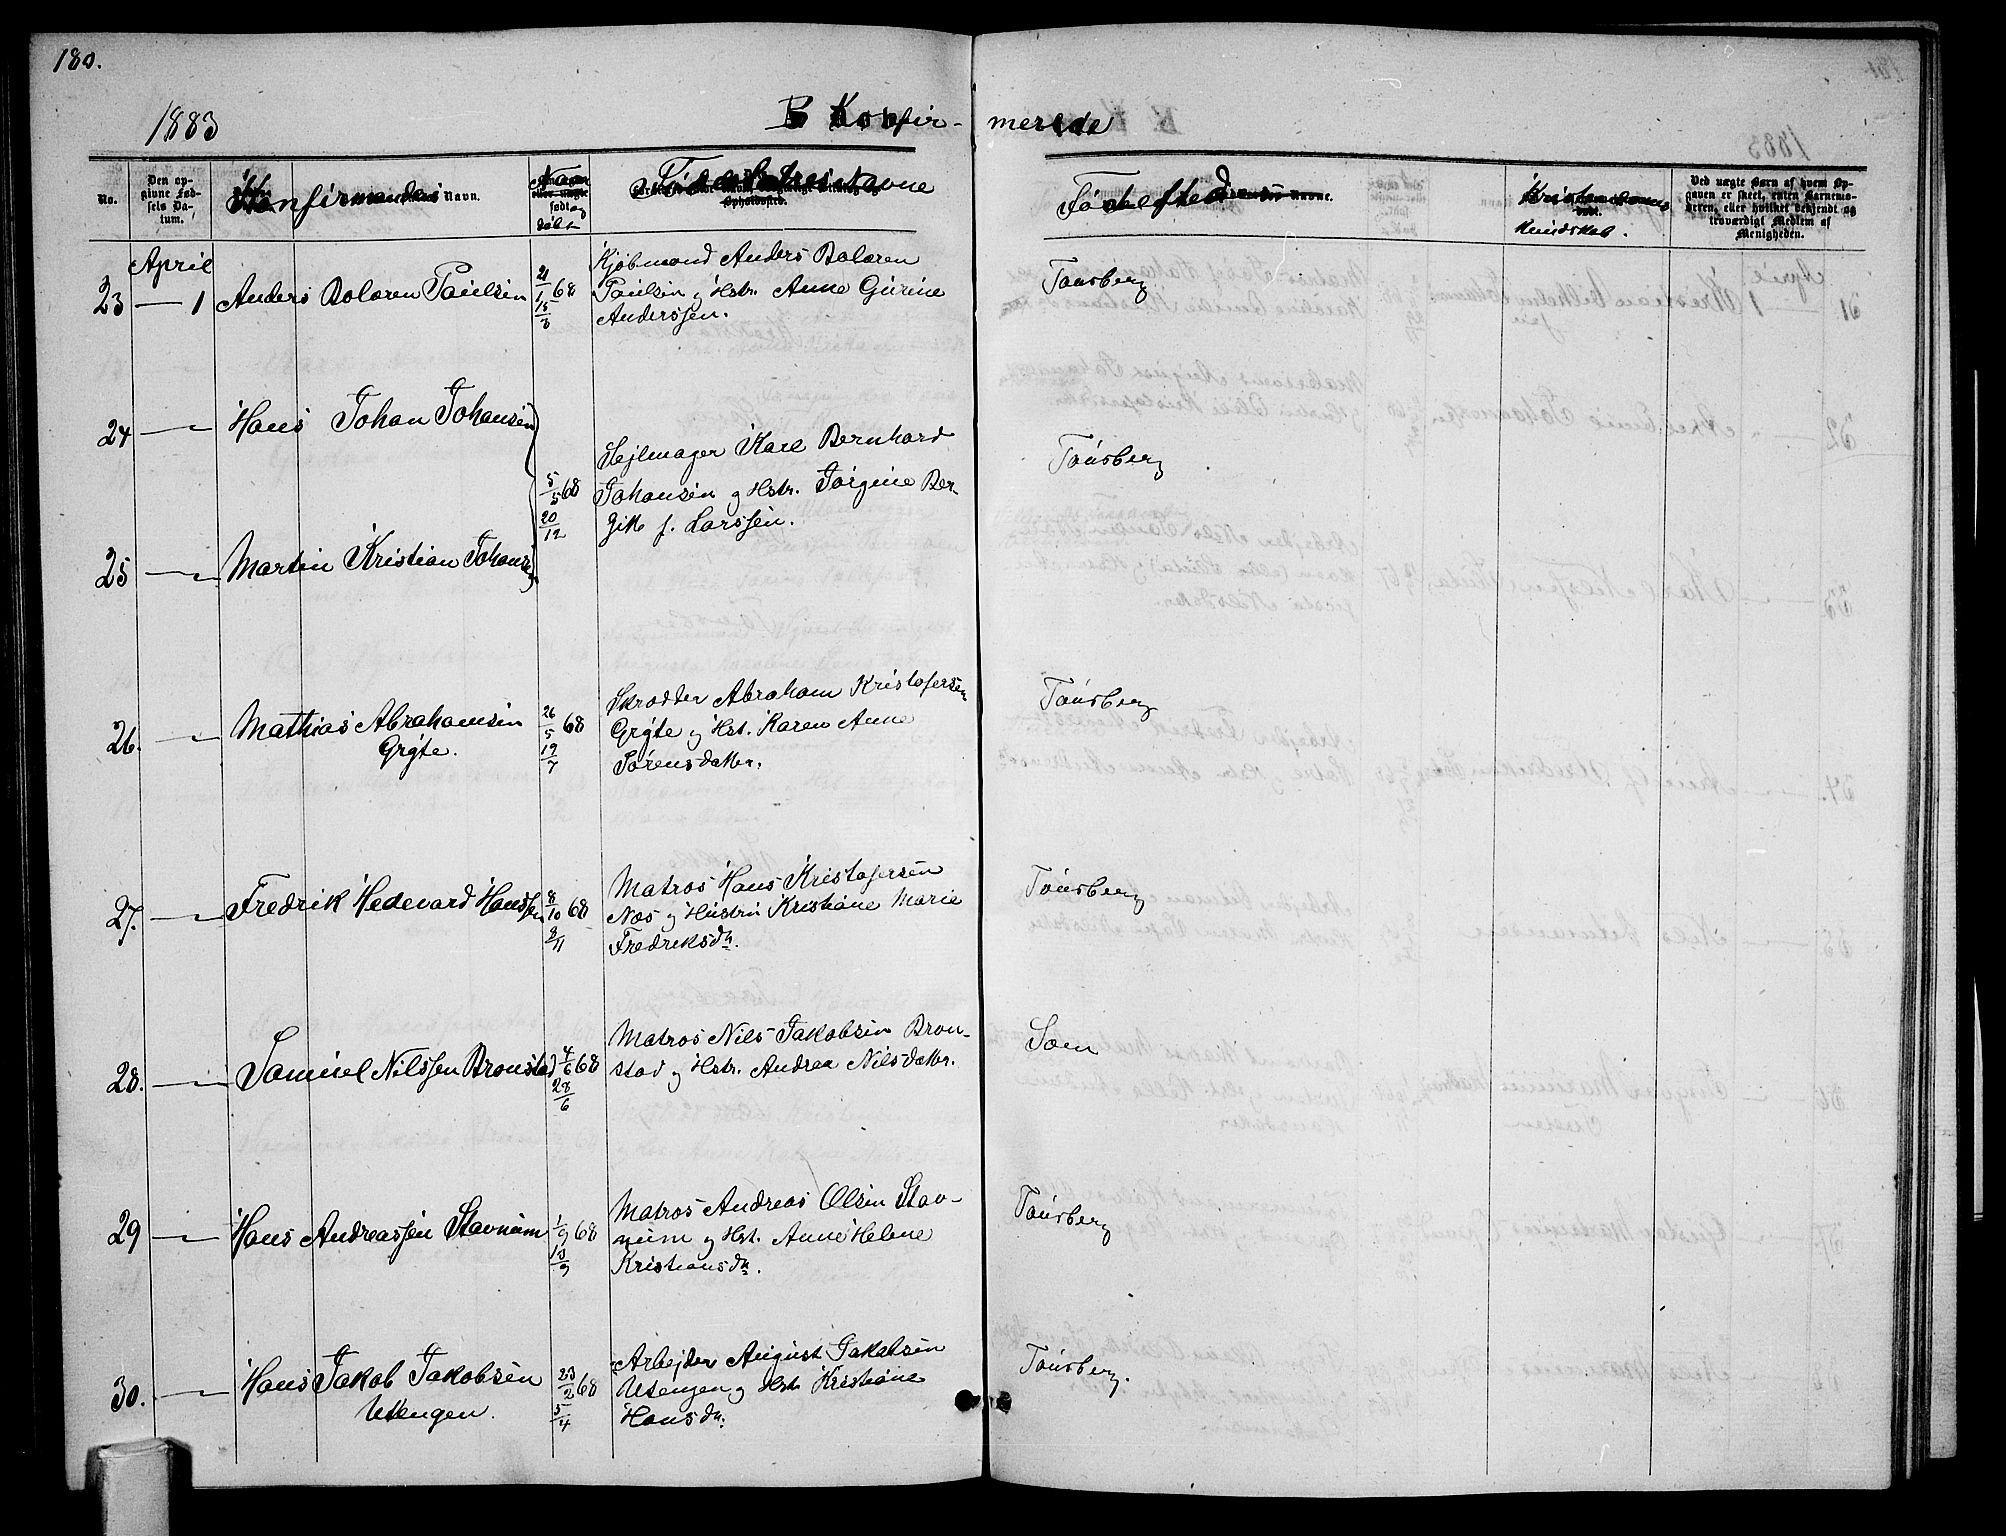 180.
1883
B Konfir-
merede
No.
Den op-
givne Fød-
sels Da-
tum.
Konfirmandens Navn.
født og
døbt
Forældrenes Navne
Opholdssted.
Fødested
Navne.
Kristendoms
Kundskab.
Ved uægte Børn af hvem Op-
gaven er skeet, enten Barnemo-
deren, eller hvilket bekjendt og
troværdigt Medlem af
Menigheden.
April
23 — 1 Anders Bolæren Paulsen 21/1 68 15/3
Kjøbmand Anders Bolæren
Paulsen og Hstr. Anne Gurine
Anderssen.
Tønsberg
24 — Hans Johan Johansen
25 — Martin Kristian Johansen
5/5 68 20/12
Sejlmager Karl Bernhard
Johansen og Hstr. Jørgine Ber-
gite f. Larssen.
Tønsberg
26. — Mathias Abrahamsen
Grøte.
26/5 68 19/7
Skrædder Abraham Kristofersen
Grøte og Hst. Karen Anne
Sørensdatter.
Tønsberg
27. — Fredrik Hedevard Hanssen 8/10 68 8/11
Matros Hans Kristofersen
Næs og Hustru Kristiane Marie
Fredriksdtr.
Tønsberg
28. — Samuel Nilssen Bronstad 4/6 68 28/6
Matros Nils Jakobsen Bron-
stad og Hstr. Andrea Nilsdatter.
Sæm
29 — Hans Andreassen Stavnum 1/9 68 13/9
Matros Andreas Olsen Stav-
num og Hst. Anne Helene
Kristiansdtr.
Tønsberg
30. — Hans Jakob Jakobsen
Utengen.
23/2 68 5/4
Arbejder August Jakobsen
Utengen og Hstr Kristiane
Hansdtr.
Tønsberg.